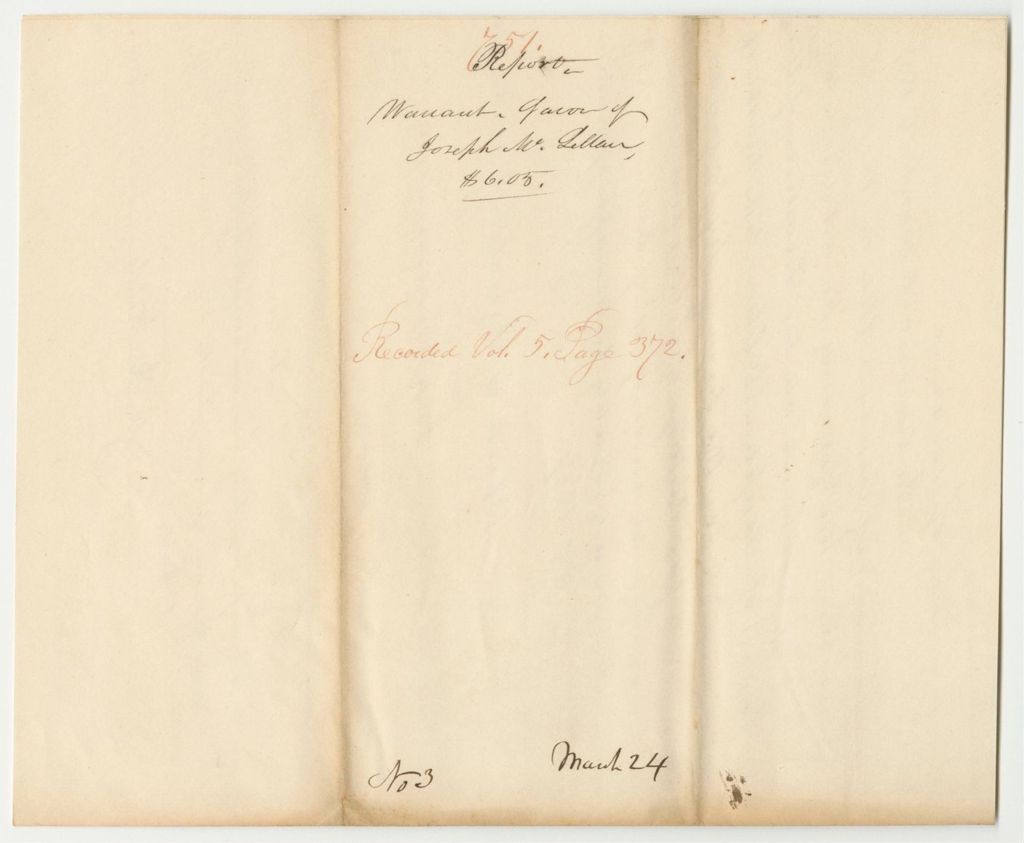 751.
Report-
Warrant. favor of
Joseph Mc. Lellan,
$6.05.
Recorded Vol. 5. Page 372.
No 3
March 24